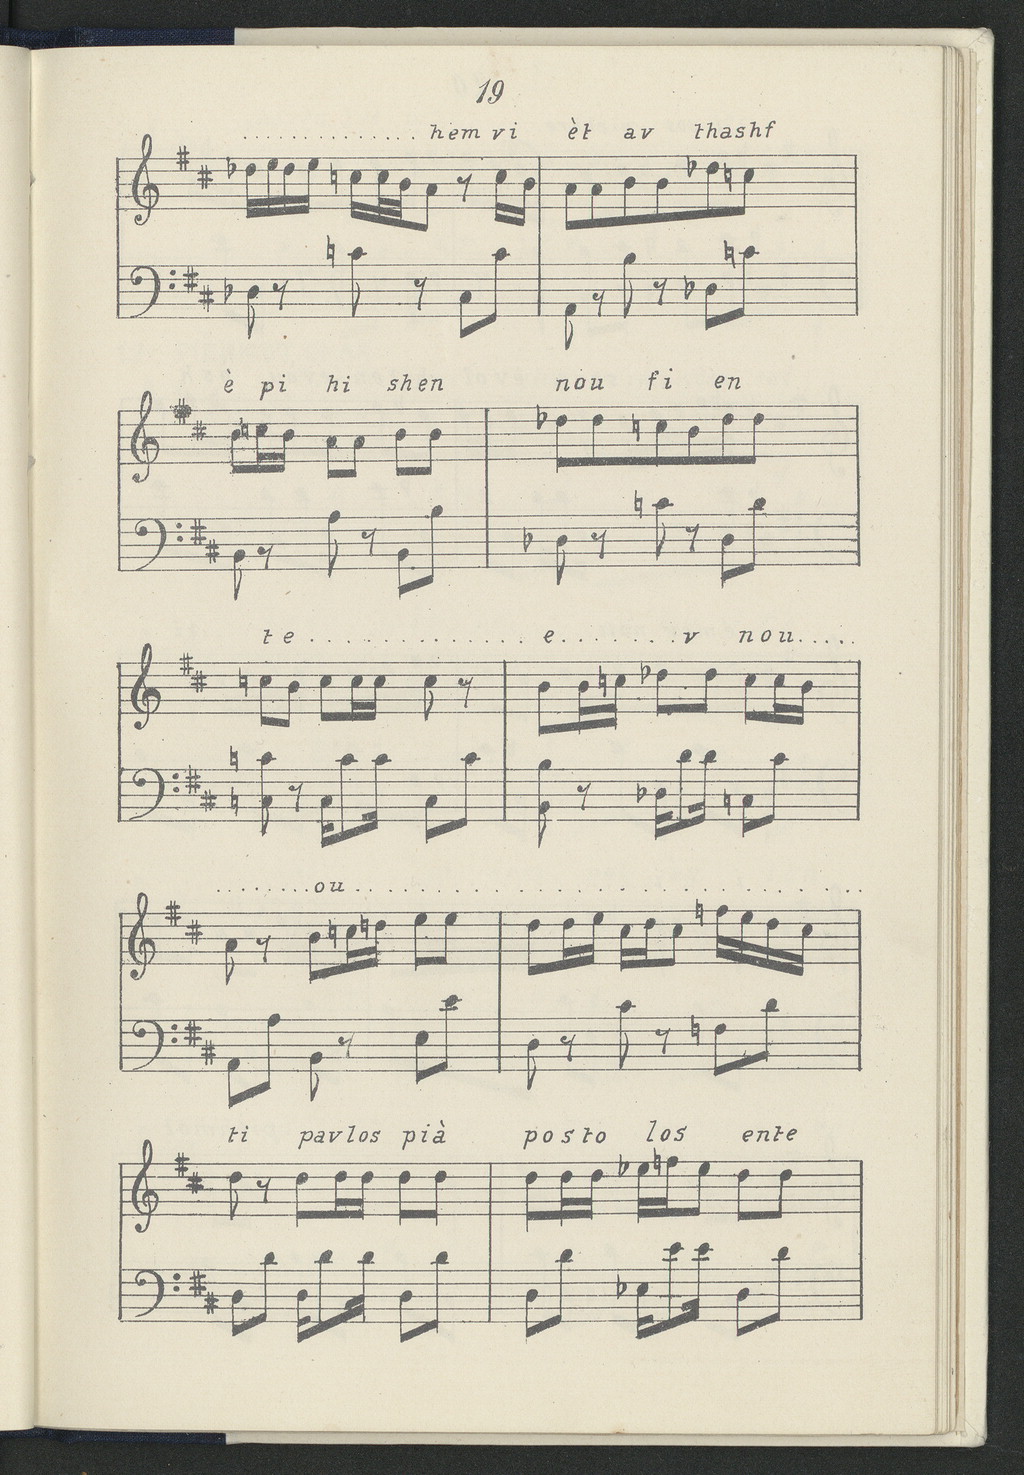 19
.............. hem vi èt av thashf
è pi hi shen nou fi en
te.............. e........v nou.....
........ou...............
ti pavlos pià posto los ente